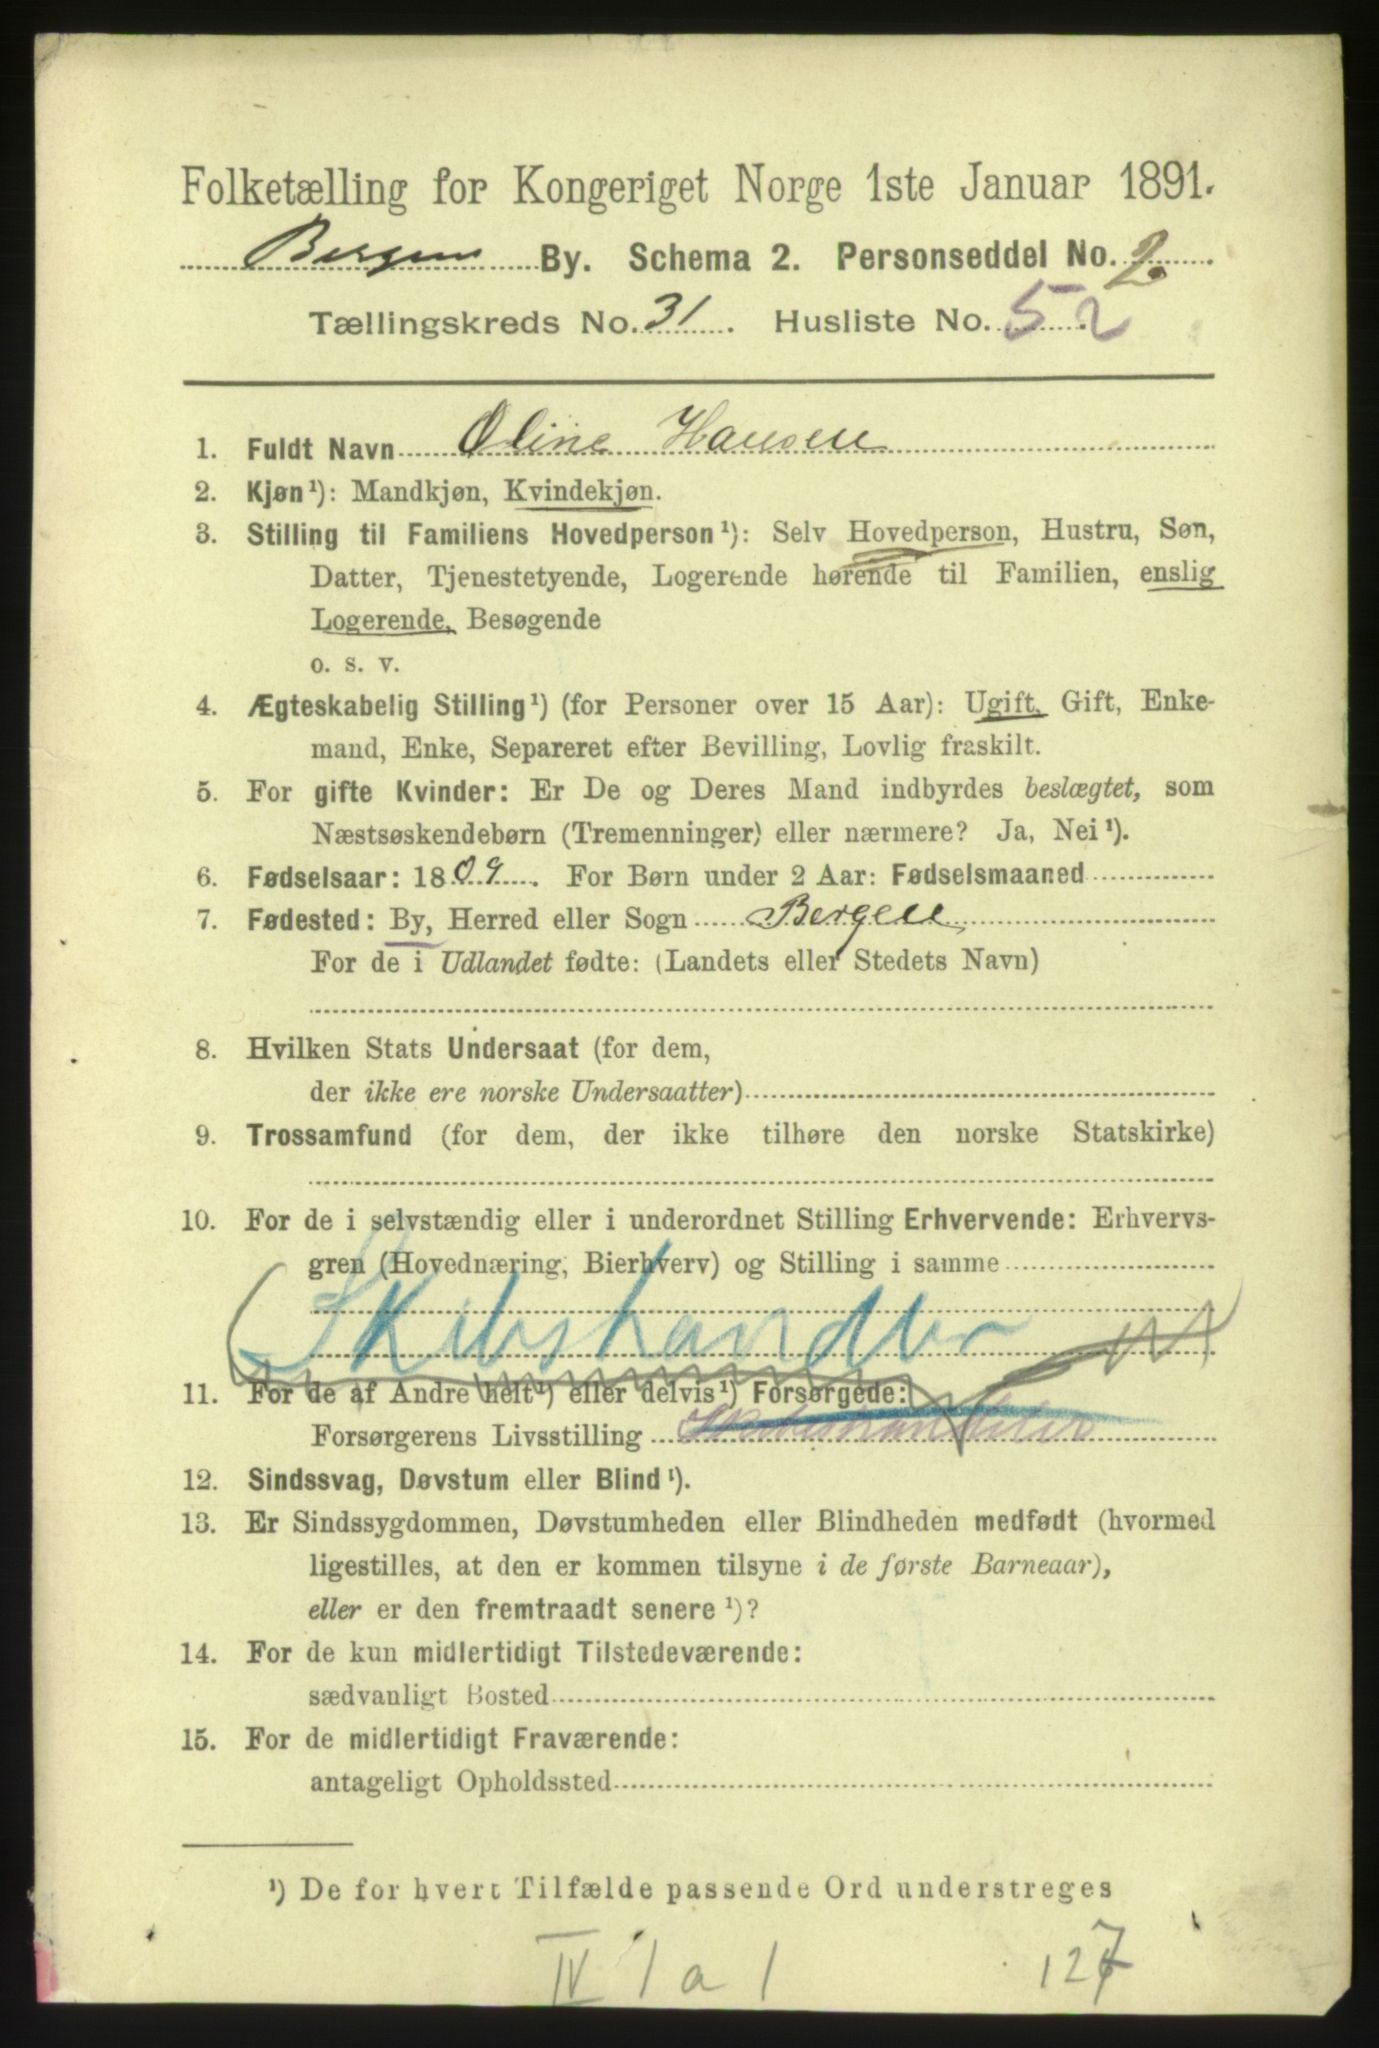 Folketælling for Kongeriget Norge 1ste Januar 1891.
Bergens By. Schema 2. Personseddel No. 2.
Tællingskreds No. 31. Husliste No. 52.
1. Fuldt Navn Oline Hansen
2. Kjøn¹): Mandkjøn, Kvindekjøn.
3. Stilling til Familiens Hovedperson¹): Selv Hovedperson, Hustru, Søn,
Datter, Tjenestetyende, Logerende hørende til Familien, enslig
Logerende, Besøgende
o. s. v.
4. Ægteskabelig Stilling¹) (for Personer over 15 Aar): Ugift, Gift, Enke-
mand, Enke, Separeret efter Bevilling, Lovlig fraskilt.
5. For gifte Kvinder: Er De og Deres Mand indbyrdes beslægtet, som
Næstsøskendebørn (Tremenninger) eller nærmere? Ja, Nei¹).
6. Fødselsaar: 1809. For Børn under 2 Aar: Fødselsmaaned
7. Fødested: By, Herred eller Sogn Bergen
For de i Udlandet fødte: (Landets eller Stedets Navn)
8. Hvilken Stats Undersaat (for dem,
der ikke ere norske Undersaatter)
9. Trossamfund (for dem, der ikke tilhøre den norske Statskirke)
10. For de i selvstændig eller i underordnet Stilling Erhvervende: Erhvervs-
gren (Hovednæring, Bierhverv) og Stilling i samme
Skibshandler
11. For de af Andre helt¹) eller delvis¹) Forsørgede:
Forsørgerens Livsstilling
12. Sindssvag, Døvstum eller Blind¹).
13. Er Sindssygdommen, Døvstumheden eller Blindheden medfødt (hvormed
ligestilles, at den er kommen tilsyne i de første Barneaar),
eller er den fremtraadt senere¹)?
14. For de kun midlertidigt Tilstedeværende:
sædvanligt Bosted
15. For de midlertidigt Fraværende:
antageligt Opholdssted
¹) De for hvert Tilfælde passende Ord understreges
IV 1 a 1 127